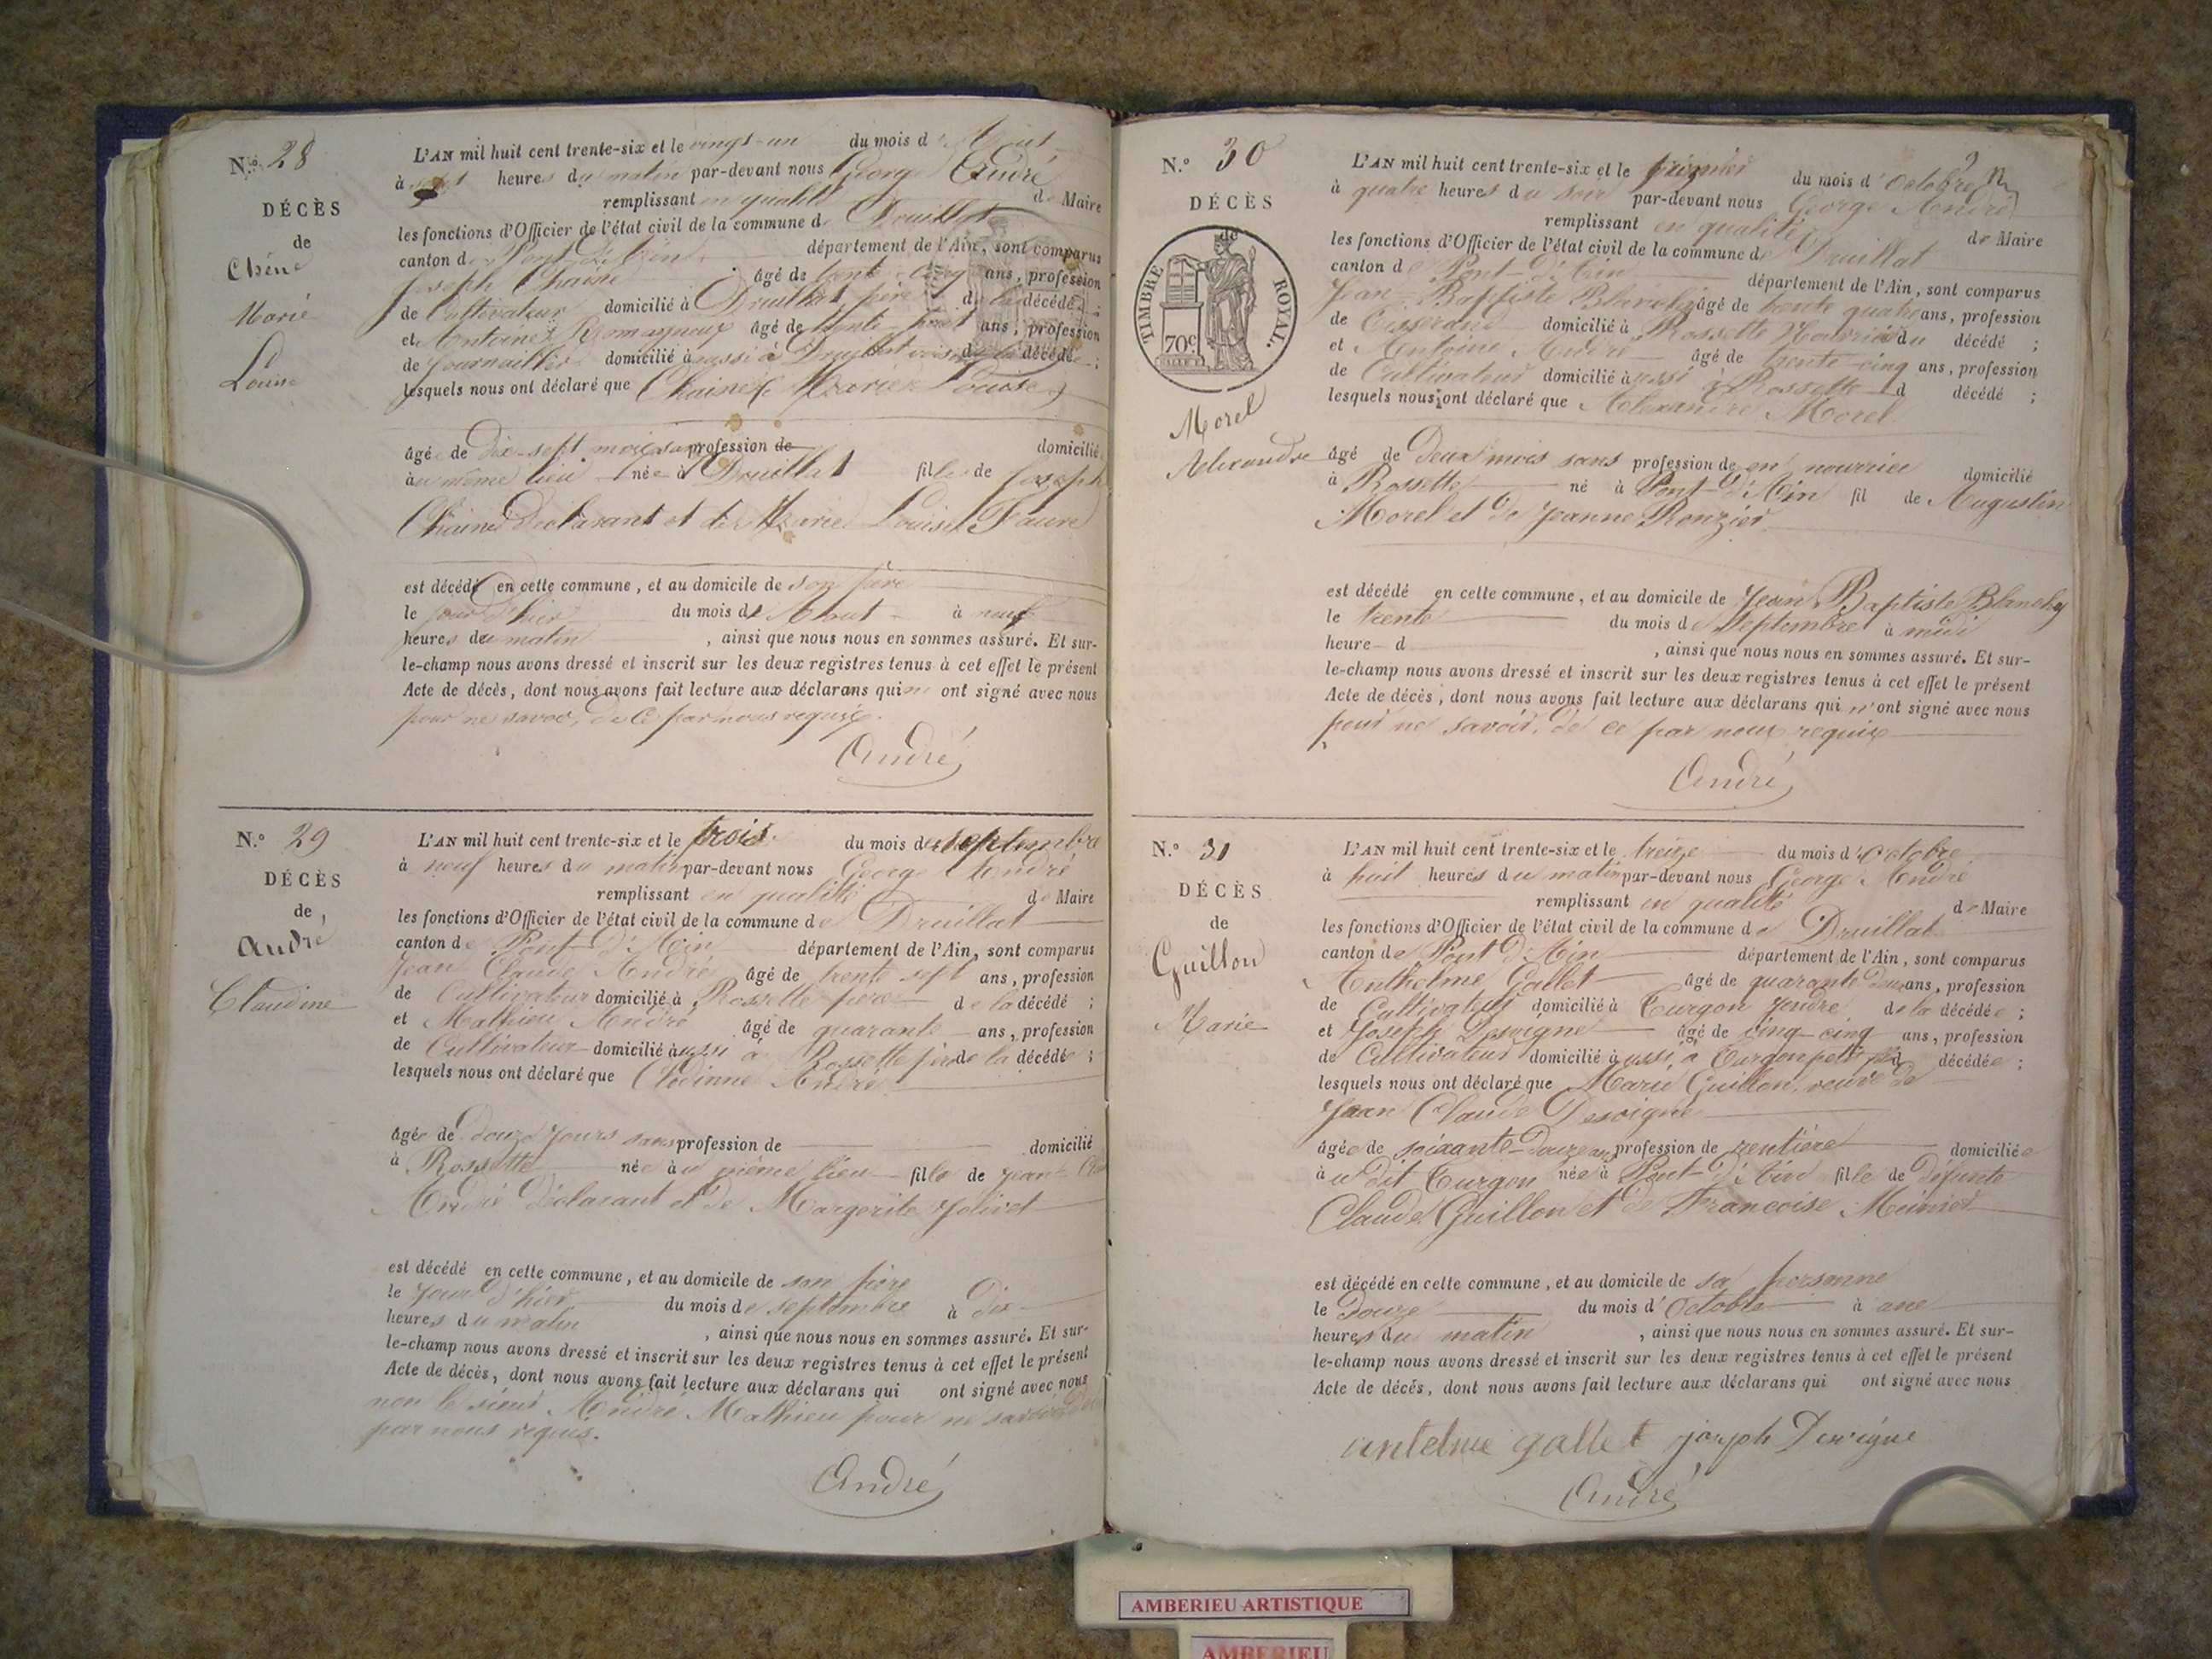 N.° 28
DÉCÈS
de
Chêne
Marie
Louise
L'AN mil huit cent trente-six et le vingt-un du mois d'Aout
à heures du matin par-devant nous George André
remplissant en qualité de Maire
les fonctions d'Officier de l'état civil de la commune de Druillat
canton de Pont-d'Ain département de l'Ain, sont comparus
Joseph Chaine âgé de trente-cinq ans, profession
de Cultivateur domicilié à Druillat, père de la décédée ;
et Antoine Romagneux âgé de trente-huit ans, profession
de Journaillier domicilié aussi à Druillat voisin de la décédée ;
lesquels nous ont déclaré que Chaine (Marie Louise)
âgée de dix-sept mois sans profession de domicilié
au même lieu née à Druillat fille de Joseph
Chaine Déclarant et de Marie Louise Faure
est décédé en cette commune, et au domicile de son père
le jour d'hier du mois de Aout à neuf
heures du matin , ainsi que nous nous en sommes assuré. Et sur-
le-champ nous avons dressé et inscrit sur les deux registres tenus à cet effet le présent
Acte de décès, dont nous avons fait lecture aux déclarans qui n'ont signé avec nous
pour ne savoir, de ce par nous requis.
André
N.° 29
DÉCÈS
de
André
Claudine
L'AN mil huit cent trente-six et le trois du mois de septembre
à neuf heures du matin par-devant nous George André
remplissant en qualité de Maire
les fonctions d'Officier de l'état civil de la commune de Druillat
canton de Pont-d'Ain département de l'Ain, sont comparus
Jean Claude André âgé de trente sept ans, profession
de Cultivateur domicilié à Rossette père de la décédé ;
et Mathieu André âgé de quarante ans, profession
de Cultivateur domicilié aussi à Rossette de la décédée ;
lesquels nous ont déclaré que Clodinne André
âgée de douze jours sans profession de domicilié
à Rossette née au même lieu fille de Jean
André Déclarant et de Margerite Jolivet
est décédé en cette commune, et au domicile de son père
le Jour d'hier du mois de septembre à dix
heures du matin , ainsi que nous nous en sommes assuré. Et sur-
le-champ nous avons dressé et inscrit sur les deux registres tenus à cet effet le présent
Acte de décès, dont nous avons fait lecture aux déclarans qui ont signé avec nous
non le sieur André Mathieu pour ne savoir
par nous requis.
André
N.° 30
DÉCÈS
de
TIMBRE ROYAL.
70c
Morel
Alexandre
L'AN mil huit cent trente-six et le premier du mois d'Octobre
à quatre heures du soir par-devant nous George André
remplissant en qualité de Maire
les fonctions d'Officier de l'état civil de la commune de Druillat
canton de Pont-d'Ain département de l'Ain, sont comparus
Jean-Baptiste Blanchy âgé de trente quatre ans, profession
de Tisserand domicilié à Rossette Nourricier du décédé ;
et Antoine André âgé de trente-cinq ans, profession
de Cultivateur domicilié aussi à Rossette d décédé ;
lesquels nous ont déclaré que Alexandre Morel
âgé de deux mois sans profession de en nourrice domicilié
à Rossette né à Pont-d'Ain fil de Augustin
Morel et de Jeanne Ronzier
est décédé en cette commune, et au domicile de Jean Baptiste Blanchy
le trente du mois de Septembre à midi
heure d , ainsi que nous nous en sommes assuré. Et sur-
le-champ nous avons dressé et inscrit sur les deux registres tenus à cet effet le présent
Acte de décès, dont nous avons fait lecture aux déclarans qui n'ont signé avec nous
pour ne savoir, de ce par nous requis
André
N.° 31
DÉCÈS
de
Guillon
Marie
L'AN mil huit cent trente-six et le treize du mois d'Octobre
à huit heures du matin par-devant nous George André
remplissant en qualité de Maire
les fonctions d'Officier de l'état civil de la commune de Druillat
canton de Pont d'Ain département de l'Ain, sont comparus
Anthelme Gallet âgé de quarante Deux ans, profession
de Cultivateur domicilié à Turgon gendre de la décédée ;
et Joseph Desvigne âgé de cinq-cinq ans, profession
de Cultivateur domicilié aussi à Turgon décédée ;
lesquels nous ont déclaré que Marie Guillon, veuve de
Jean Claude Desvigne
âgée de soixante-Douze ans profession de rentière domiciliée
au dit Turgon née à Pont-d'Ain fille de Défunte
Claude Guillon et de Francoise Meunier
est décédé en cette commune, et au domicile de sa personne
le Douze du mois d'Octobre à une
heures du matin , ainsi que nous nous en sommes assuré. Et sur-
le-champ nous avons dressé et inscrit sur les deux registres tenus à cet effet le présent
Acte de décés, dont nous avons fait lecture aux déclarans qui ont signé avec nous
antelme gallet joseph Desvigne
André
AMBERIEU ARTISTIQUE
AMBERIEU